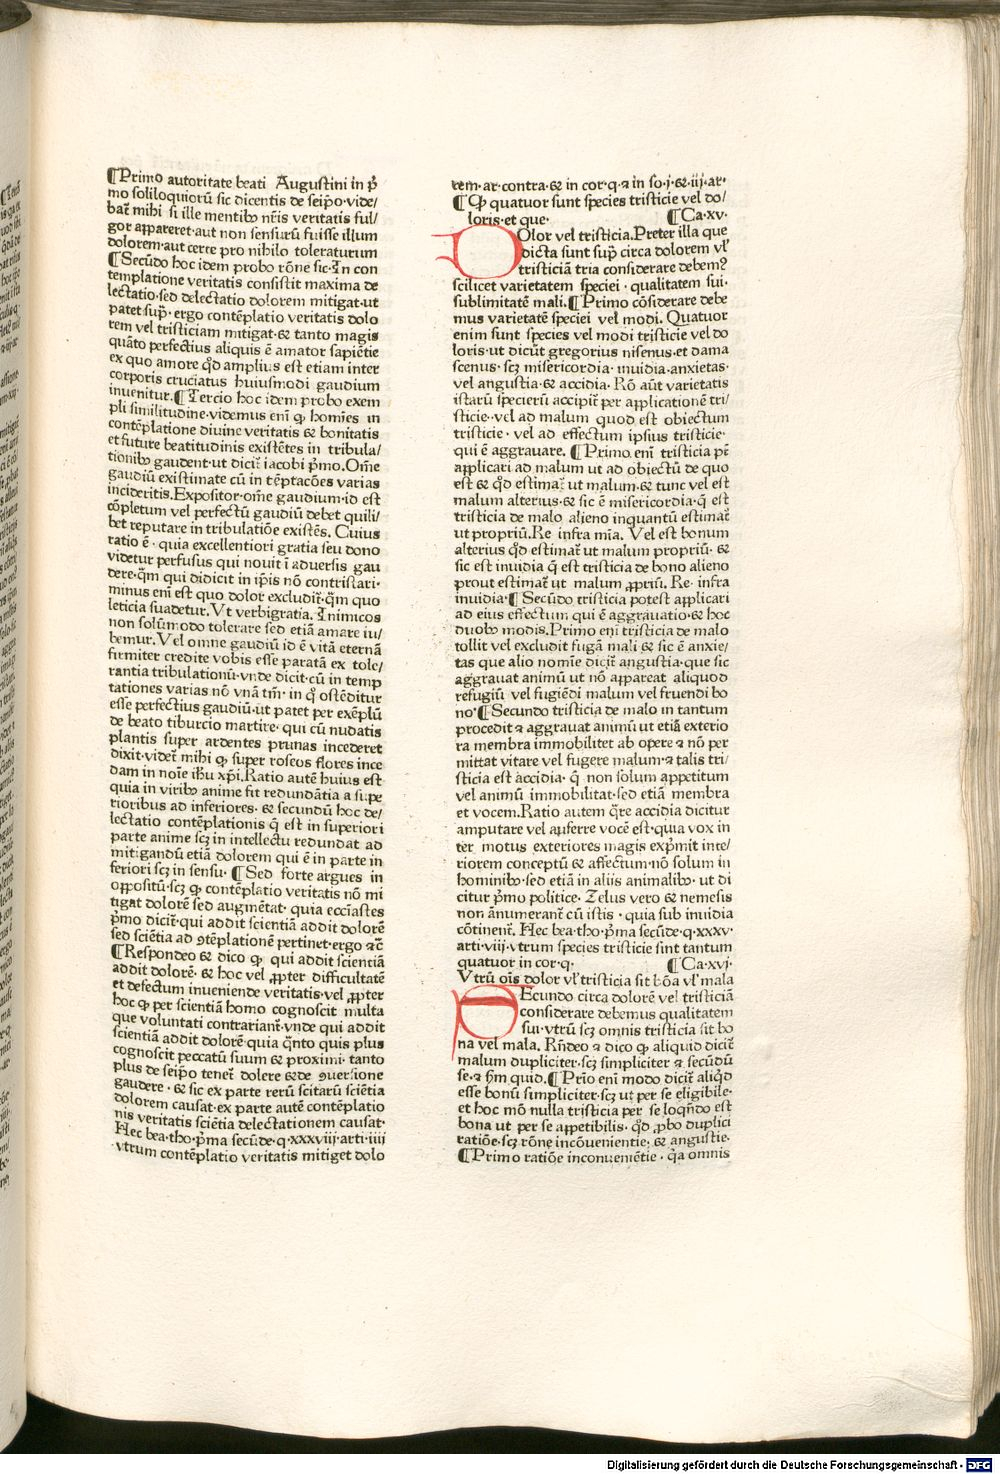 ¶Primo autoritate beati Augustini in p̄
mo soliloquiorū sic dicentis de seip̄o·vide/
bat̄ mihi si ille mentibꝯ nr̄is veritatis ful/
gor appareret·aut non sensurū fuisse illum
dolorem·aut certe pro nihilo toleraturum
¶Secūdo hoc idem probo rōne sic·In con
templatione veritatis consistit maxima de
lectatio·sed delectatio dolorem mitigat·ut
patet sup̄·ergo contēplatio veritatis dolo
rem vel tristiciam mitigat·& tanto magis
quāto perfectius aliquis ē amator sapiētie
ex quo amore qd̄ amplius est etiam inter
corporis cruciatus huiusmodi gaudium
inuenitur.¶Tercio hoc idem probo exem
pli similitudine·videmus enī ꝙ homīes in
contēplatione diuine veritatis & bonitatis
et future beatitudinis existētes in tribula/
tionibꝯ gaudent·ut dicit̄ iacobi p̄mo.Om̄e
gaudiū existimate cū in tēptacōes varias
incideritis.Expositor·om̄e gaudium·id est
cōpletum vel perfectū gaudiū debet quili/
bet reputare in tribulatiōe existēs. Cuius
ratio ē · quia excellentiori gratia seu dono
videtur perfusus qui nouit ī aduersis gau
dere·qm̄ qui didicit in ip̄is nō contristari·
minus enī est quo dolor excludit̄·qm̄ quo
leticia suadetur.Vt verbigratia. Inimicos
non solūmodo tolerare sed etiā amare iu/
bemur.Vel omne gaudiū id ē vitā eternā
firmiter credite vobis esse paratā ex tole/
rantia tribulationū·vnde dicit·cū in temp
tationes varias nō vnā tm̄· in q̄ ostēditur
esse perfectius gaudiū·ut patet per exēplū
de beato tiburcio martire· qui cū nudatis
plantis super ardentes prunas incederet
dixit·videt̄ mihi ꝙ super roseos flores ince
dam in noīe ih̄u xp̄i.Ratio autē huius est
quia in viribꝯ anime fit redundātia a supe
rioribus ad inferiores· & secundū hoc de/
lectatio contēplationis q̄ est in superiori
parte anime scꝫ in intellectu redundat ad
mitigandū etiā dolorem qui ē in parte in
feriori scꝫ in sensu· ¶Sed forte argues in
oppositū·scꝫ ꝙ contēplatio veritatis nō mi
tigat dolorē sed augmētat· quia eccīastes
p̄mo dicit̄·qui addit scientiā addit dolorē
sed sciētia ad ꝯtēplationē pertinet·ergo &c̄
¶Respondeo & dico ꝙ qui addit scientiā
addit dolorē· & hoc vel ꝓpter difficultatē
et defectum inueniende veritatis·vel ꝓpter
hoc ꝙ per scientiā homo cognoscit multa
que voluntati contrariant̄·vnde qui addit
scientiā addit dolorē·quia q̄nto quis plus
cognoscit peccatū suum & proximi· tanto
plus de seip̄o tenet̄ dolere &de ꝯuersione
gaudere · & sic ex parte rerū scitarū sciētia
dolorem causat·ex parte autē contēplatio
nis veritatis sciētia delectationem causat·
Hec bea·tho·p̄ma secūde·q·xxxviij·arti·iiij
·vtrum contēplatio veritatis mitiget dolo
rem·ar·contra·& in cor·q·⁊ in so·j·&·iij·ar·
¶Ꝙ quatuor sunt species tristicie vel do/
loris·et que· ¶Ca·xv·
Dolor vel tristicia.Preter illa que
dicta sunt sup̄ circa dolorem vl̄
tristiciā tria considerare debemꝰ
scilicet varietatem speciei · qualitatem sui·
sublimitatē mali.¶Primo cōsiderare debe
mus varietatē speciei vel modi. Quatuor
enim sunt species vel modi tristicie vel do
loris·ut dicūt gregorius nisenus·et dama
scenus· scꝫ misericordia· inuidia·anxietas·
vel angustia·& accidia· Rō aūt varietatis
istarū specierū accipit̄ per applicationē tri/
sticie·vel ad malum quod est obiectum
tristicie · vel ad effectum ipsius tristicie·
qui ē aggrauare. ¶Primo enī tristicia pt̄
applicari ad malum ut ad obiectū de quo
est & qd̄ estimat̄ ut malum·& tunc vel est
malum alterius·& sic ē misericordia·q̄ est
tristicia de malo alieno inquantū estimat̄
ut propriū.Re infra mīa. Vel est bonum
alterius qd̄ estimat̄ ut malum propriū· &
sic est inuidia q̄ est tristicia de bono alieno
prout estimat̄ ut malum ꝓpriū. Re· infra
inuidia·¶Secūdo tristicia potest applicari
ad eius effectum qui ē aggrauatio·& hoc
duobꝯ modis.Primo enī tristicia de malo
tollit vel excludit fugā mali & sic ē anxie/
tas que alio nomīe dicit̄ angustia·que sic
aggrauat animū ut nō appareat aliquod
refugiū vel fugiēdi malum vel fruendi bo
no·¶Secundo tristicia de malo in tantum
procedit ⁊ aggrauat animū ut etiā exterio
ra membra immobilitet ab opere ⁊ nō per
mittat vitare vel fugere malum·⁊ talis tri/
sticia est accidia· q̄ non solum appetitum
vel animū immobilitat·sed etiā membra
et vocem.Ratio autem q̄re accidia dicitur
amputare vel auferre vocē est·quia vox in
ter motus exteriores magis exp̄mit inte/
riorem conceptū & affectum·nō solum in
hominibꝯ·sed etiā in aliis animalibꝯ· ut di
citur p̄mo politice· Zelus vero & nemesis
non ānumerant̄ cū istis · quia sub inuidia
cōtinent̄. Hec bea·tho·p̄ma secūde·q·xxxv·
arti·viij·vtrum species tristicie sint tantum
quatuor in cor·q· ¶Ca·xvj·
Vtrū oīs dolor vl̄ tristicia sit bōa vl̄ mala
Secundo circa dolorē vel tristiciā
considerare debemus qualitatem
sui·vtrū scꝫ omnis tristicia sit bo
na vel mala. Rn̄deo ⁊ dico ꝙ aliquid dicit̄
malum dupliciter·scꝫ simpliciter ⁊ secūdū
se·⁊ sm̄ quid.¶Prīo enī modo dicit̄ aliqd̄
esse bonū simpliciter·scꝫ ut per se eligibile·
et hoc mō nulla tristicia per se loqn̄do est
bona ut per se appetibilis· qd̄ ꝓbo duplici
ratiōe·scꝫ rōne incōuenientie· & angustie·
¶Primo ratiōe inconueniētie · q̄a omnis
Digitalisierung gefördert durch die Deutsche Forschungsgemeinschaft - DFG